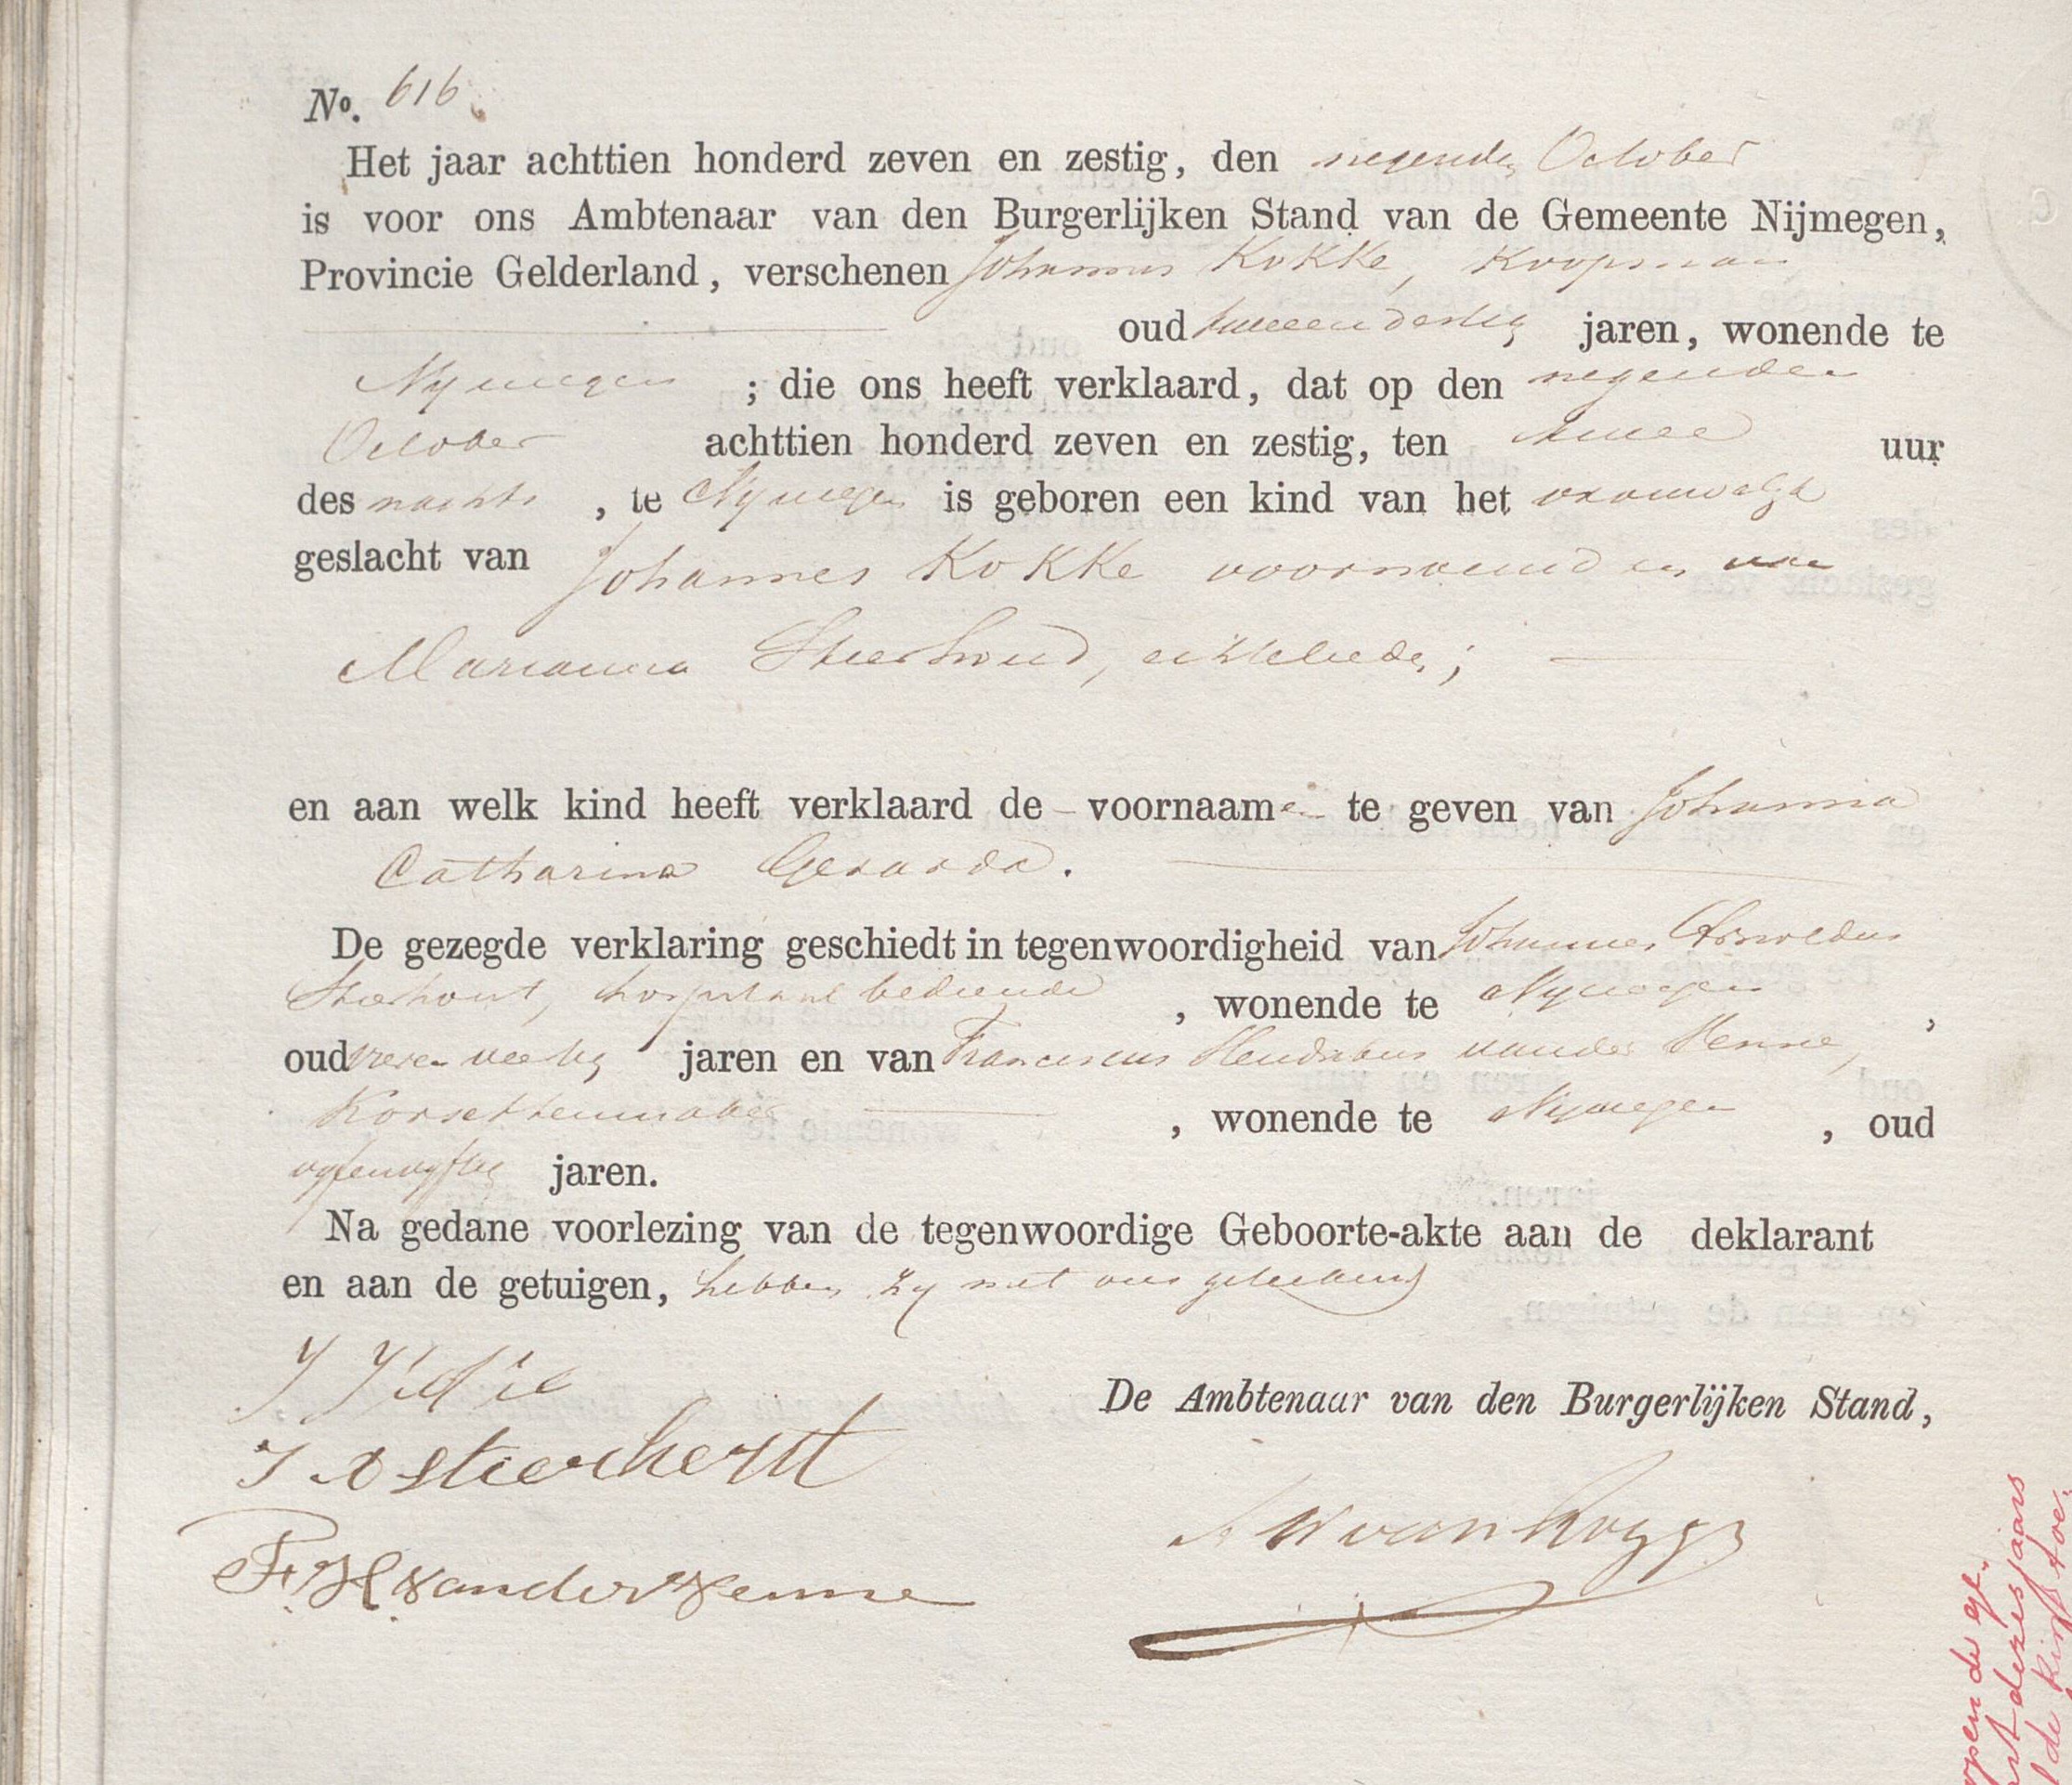 No. 616.
Het jaar achttien honderd zeven en zestig, den negenden October
is voor ons Ambtenaar van den Burgerlijken Stand van de Gemeente Nijmegen,
Provincie Gelderland, verschenen Johannes Kokke, Koopman
oud tweeendertig jaren, wonende te
Nymegen ; die ons heeft verklaard, dat op den negenden
October achttien honderd zeven en zestig, ten twee uur
des nachts , te Nymegen is geboren een kind van het vrouwelyk
geslacht van Johannes Kokke voornoemd en van
Marianna Stierhoud, echtelieden;
en aan welk kind heeft verklaard de voornaamen te geven van Johanna
Catharina Gerarda.
De gezegde verklaring geschiedt in tegenwoordigheid van Johannes Arnoldus
Stierhout, hospitaal bediende , wonende te Nymegen ,
oud veertig jaren en van Franciscus Hendrikus vander Henne,
Korsettenmaker , wonende te Nymegen , oud
vyfenvyftig jaren.
Na gedane voorlezing van de tegenwoordige Geboorte-akte aan de deklarant
en aan de getuigen, hebben zy met ons geteekend
De Ambtenaar van den Burgerlijken Stand,
J A Stierhout
F. H. vander Henne